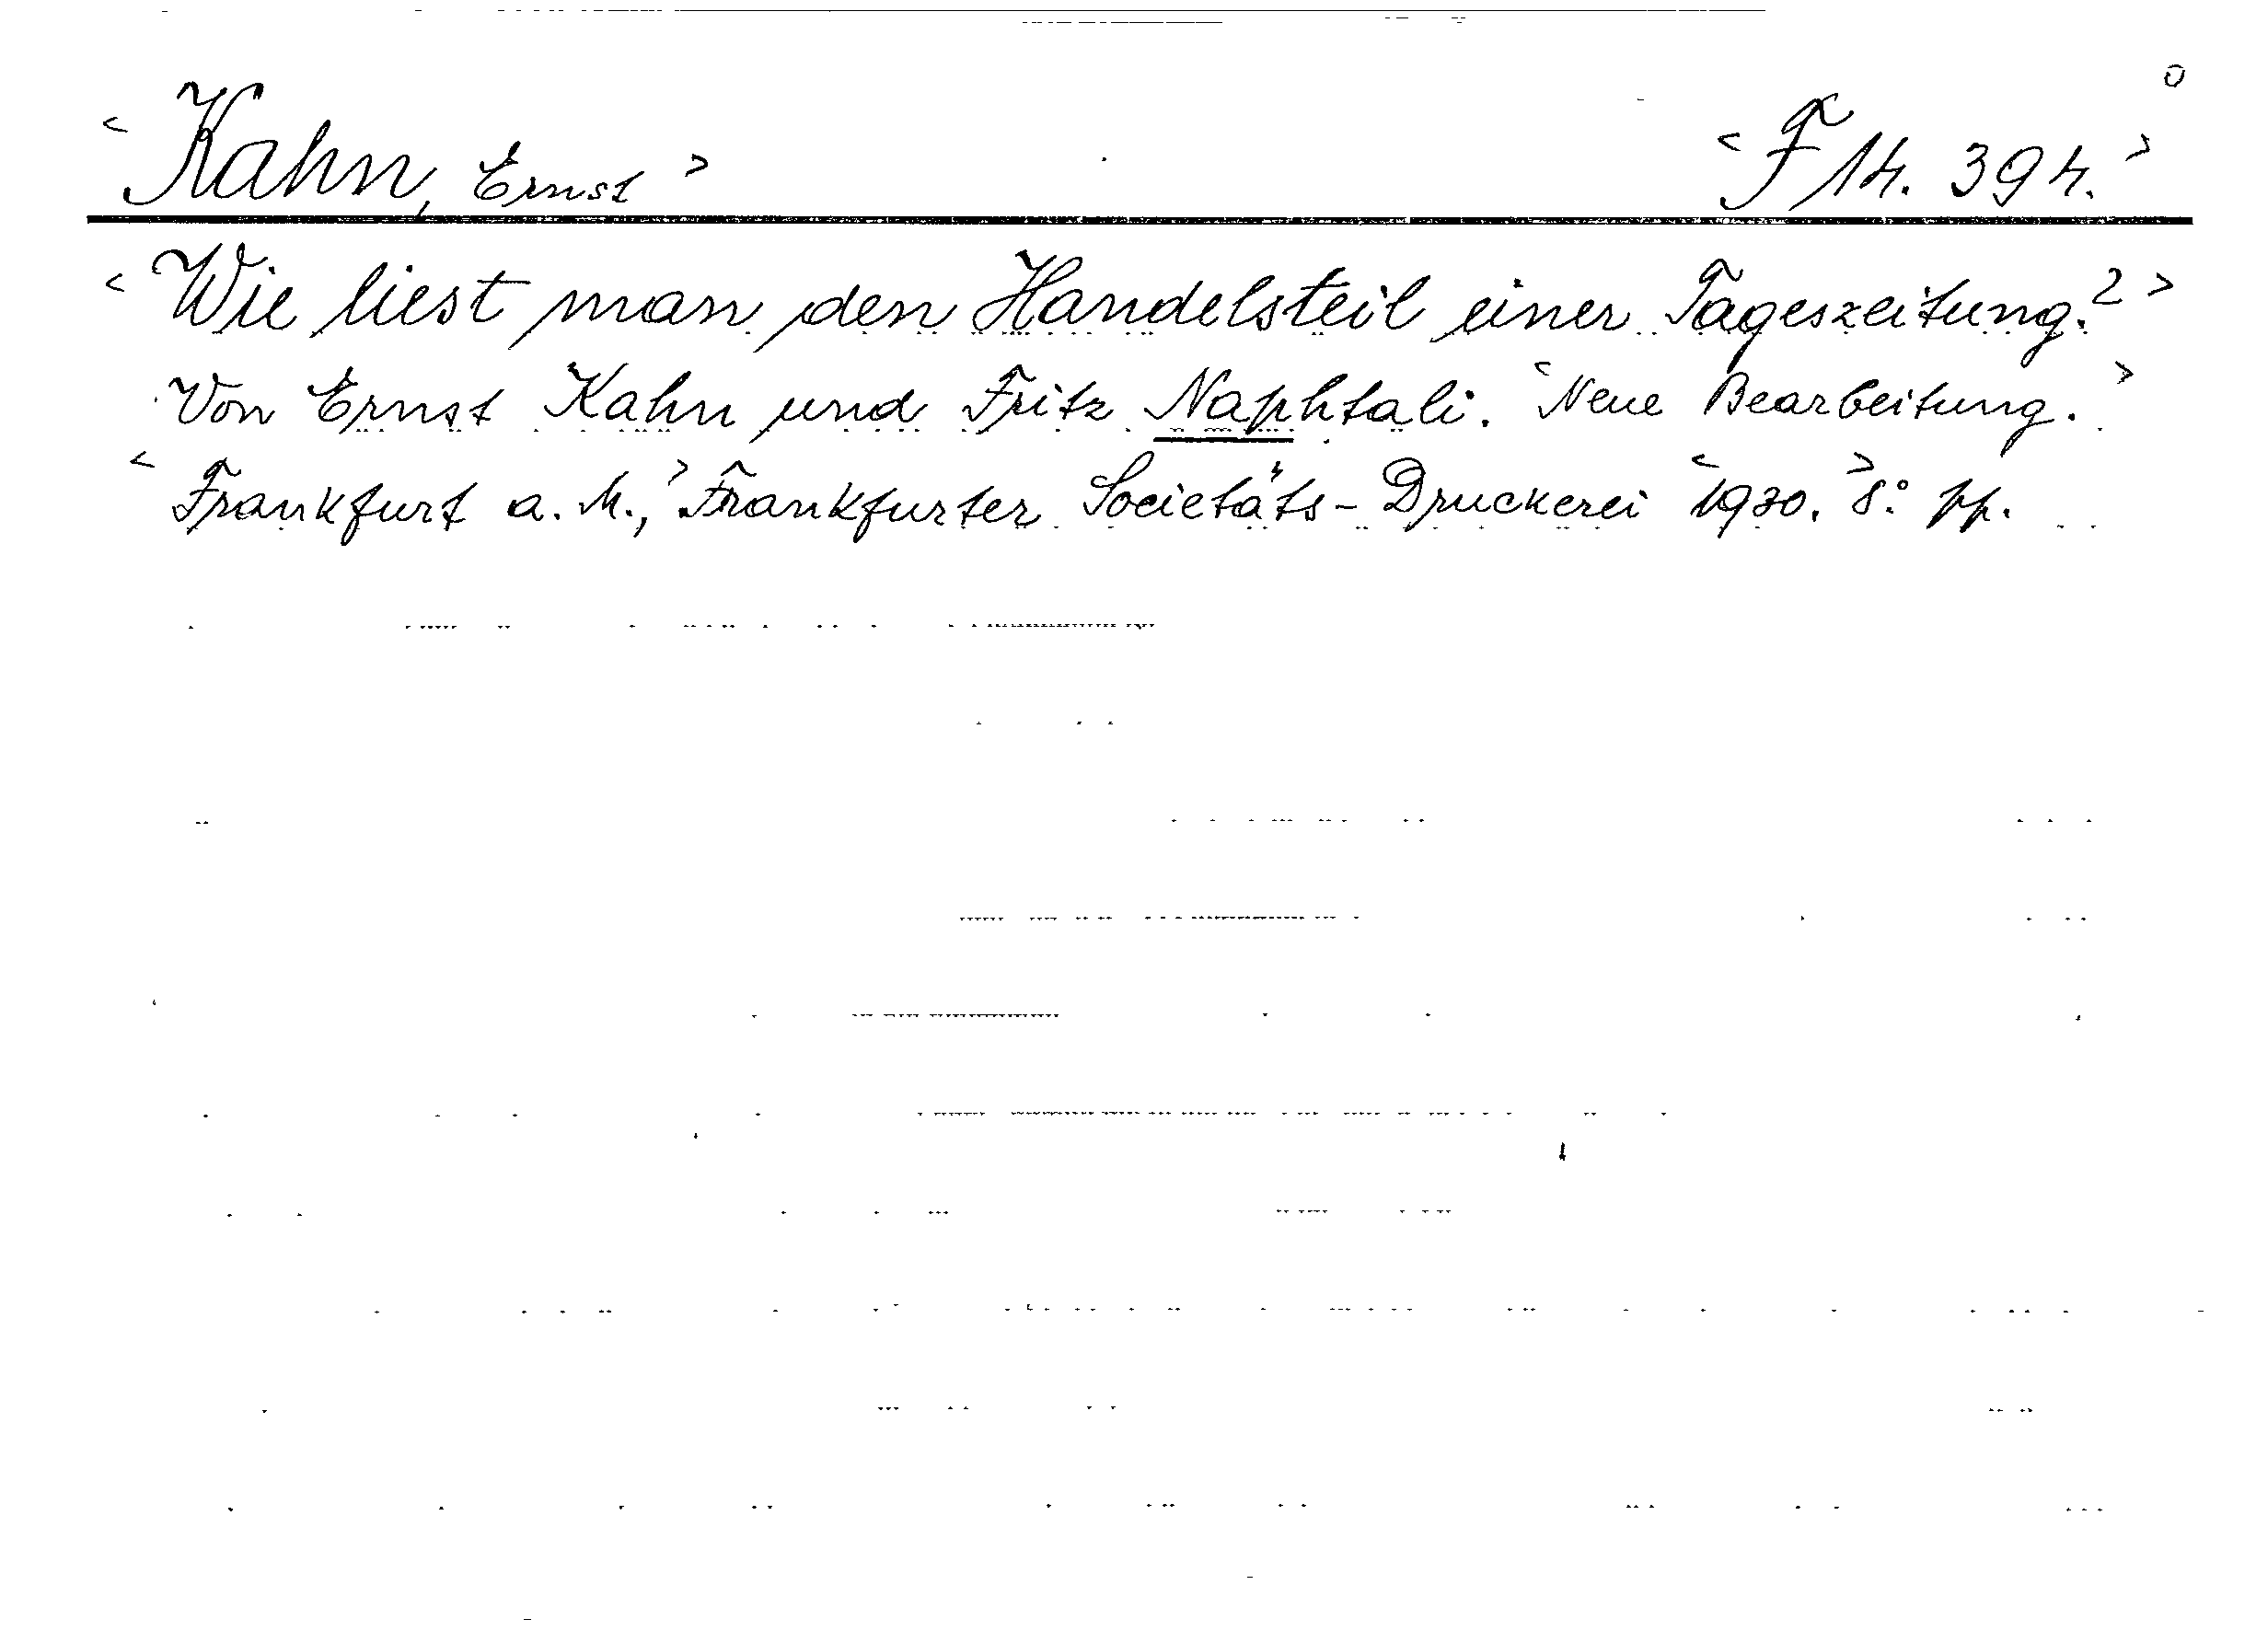 <Kahn, Ernst> <F 14. 394.>
<Wie liest man den Handelsteil einer Tageszeitung.?>
Von Ernst Kahn und Fritz Naphtali. <Neue Bearbeitung.>
<Frankfurt a. M.,> Frankfurter Societäts-Druckerei <1930.> 8:° pp.